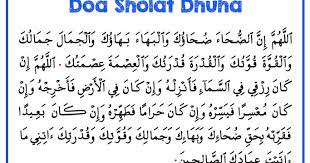 Doa Sholat Dhuha
اَللّٰهُمَّ اِنَّ الضُّحَاءَ ضُحَاؤُكَ وَالْبَهَاءَ بَهَاؤُكَ وَالْجَمَالَ جَمَالُكَ
وَالْقُوَّةَ قُوَّتُكَ وَالْقُدْرَةَ قُدْرَتُكَ وَالْعِصْمَةَ عِصْمَتُكَ. اَللّٰهُمَّ اِنْ
كَانَ رِزْقِى فِى السَّمَآءِ فَأَنْزِلْهُ وَاِنْ كَانَ فِى اْلاَرْضِ فَأَخْرِجْهُ وَاِنْ
كَانَ مُعْسِرًا فَيَسِّرْهُ وَاِنْ كَانَ حَرَامًا فَطَهِّرْهُ وَاِنْ كَانَ بَعِيْدًا
فَقَرِّبْهُ بِحَقِّ ضُحَاءِكَ وَبَهَاءِكَ وَجَمَالِكَ وَقُوَّتِكَ وَقُدْرَتِكَ اٰتِنِيْ مَا
اٰتَيْتَ عِبَادَكَ الصَّالِحِيْنَ.